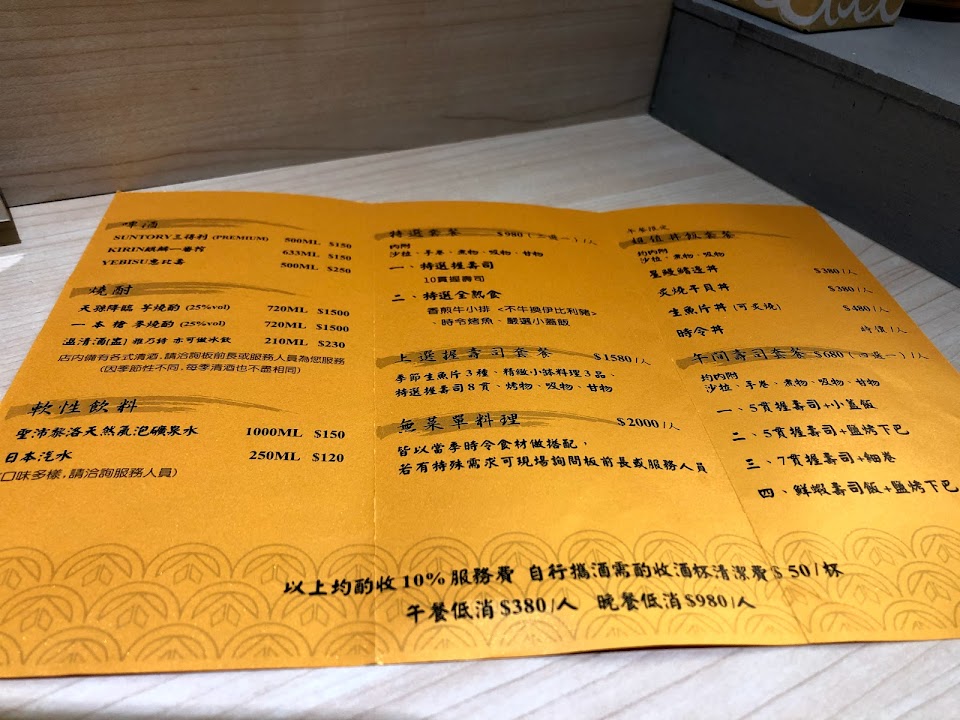 啤酒
SUNTORY三得利 (PREMIUM) 500ML $150
KIRIN麒麟一番搾 633ML $150
YEBISU惠比壽 500ML $250
燒酎
天孫降臨 芋燒酌 (25%vol) 720ML $1500
一本槍 麥燒酌 (25%vol) 720ML $1500
溫清酒(盅) 雅乃詩 亦可做冰飲 210ML $230
店內備有各式清酒,請洽詢板前長或服務人員為您服務
(因季節性不同,每季清酒也不盡相同)
軟性飲料
聖沛黎洛天然氣泡礦泉水 1000ML $150
日本汽水 250ML $120
口味多樣,請洽詢服務人員)
特選套餐 $980 (二選一) /人
均內附
沙拉、手卷、煮物、吸物、甘物
一、特選握壽司
10貫握壽司
二、特選全熟食
香煎牛小排 <不牛換伊比利豬>
、時令烤魚、嚴選小蓋飯
上選握壽司套餐 $1580 /人
季節生魚片3種、精緻小缽料理3品、
特選握壽司8貫、烤物、吸物、甘物
無菜單料理 $2000 /人
皆以當季時令食材做搭配,
若有特殊需求可現場詢問板前長或服務人員
午餐限定
超值丼飯套餐
均內附
沙拉、煮物、吸物
星鰻鰭邊丼 $380 /人
炙燒干貝丼 $380 /人
生魚片丼 (可炙燒) $480 /人
時令丼 時價 /人
午間壽司套餐 $680 (四選一) /人
均內附
沙拉、手卷、煮物、吸物、甘物
一、5貫握壽司+小蓋飯
二、5貫握壽司+鹽烤下巴
三、7貫握壽司+細卷
四、鮮蝦壽司飯+鹽烤下巴
以上均酌收10%服務費 自行攜酒需酌收酒杯清潔費$50/杯
午餐低消$380/人 晚餐低消$980/人